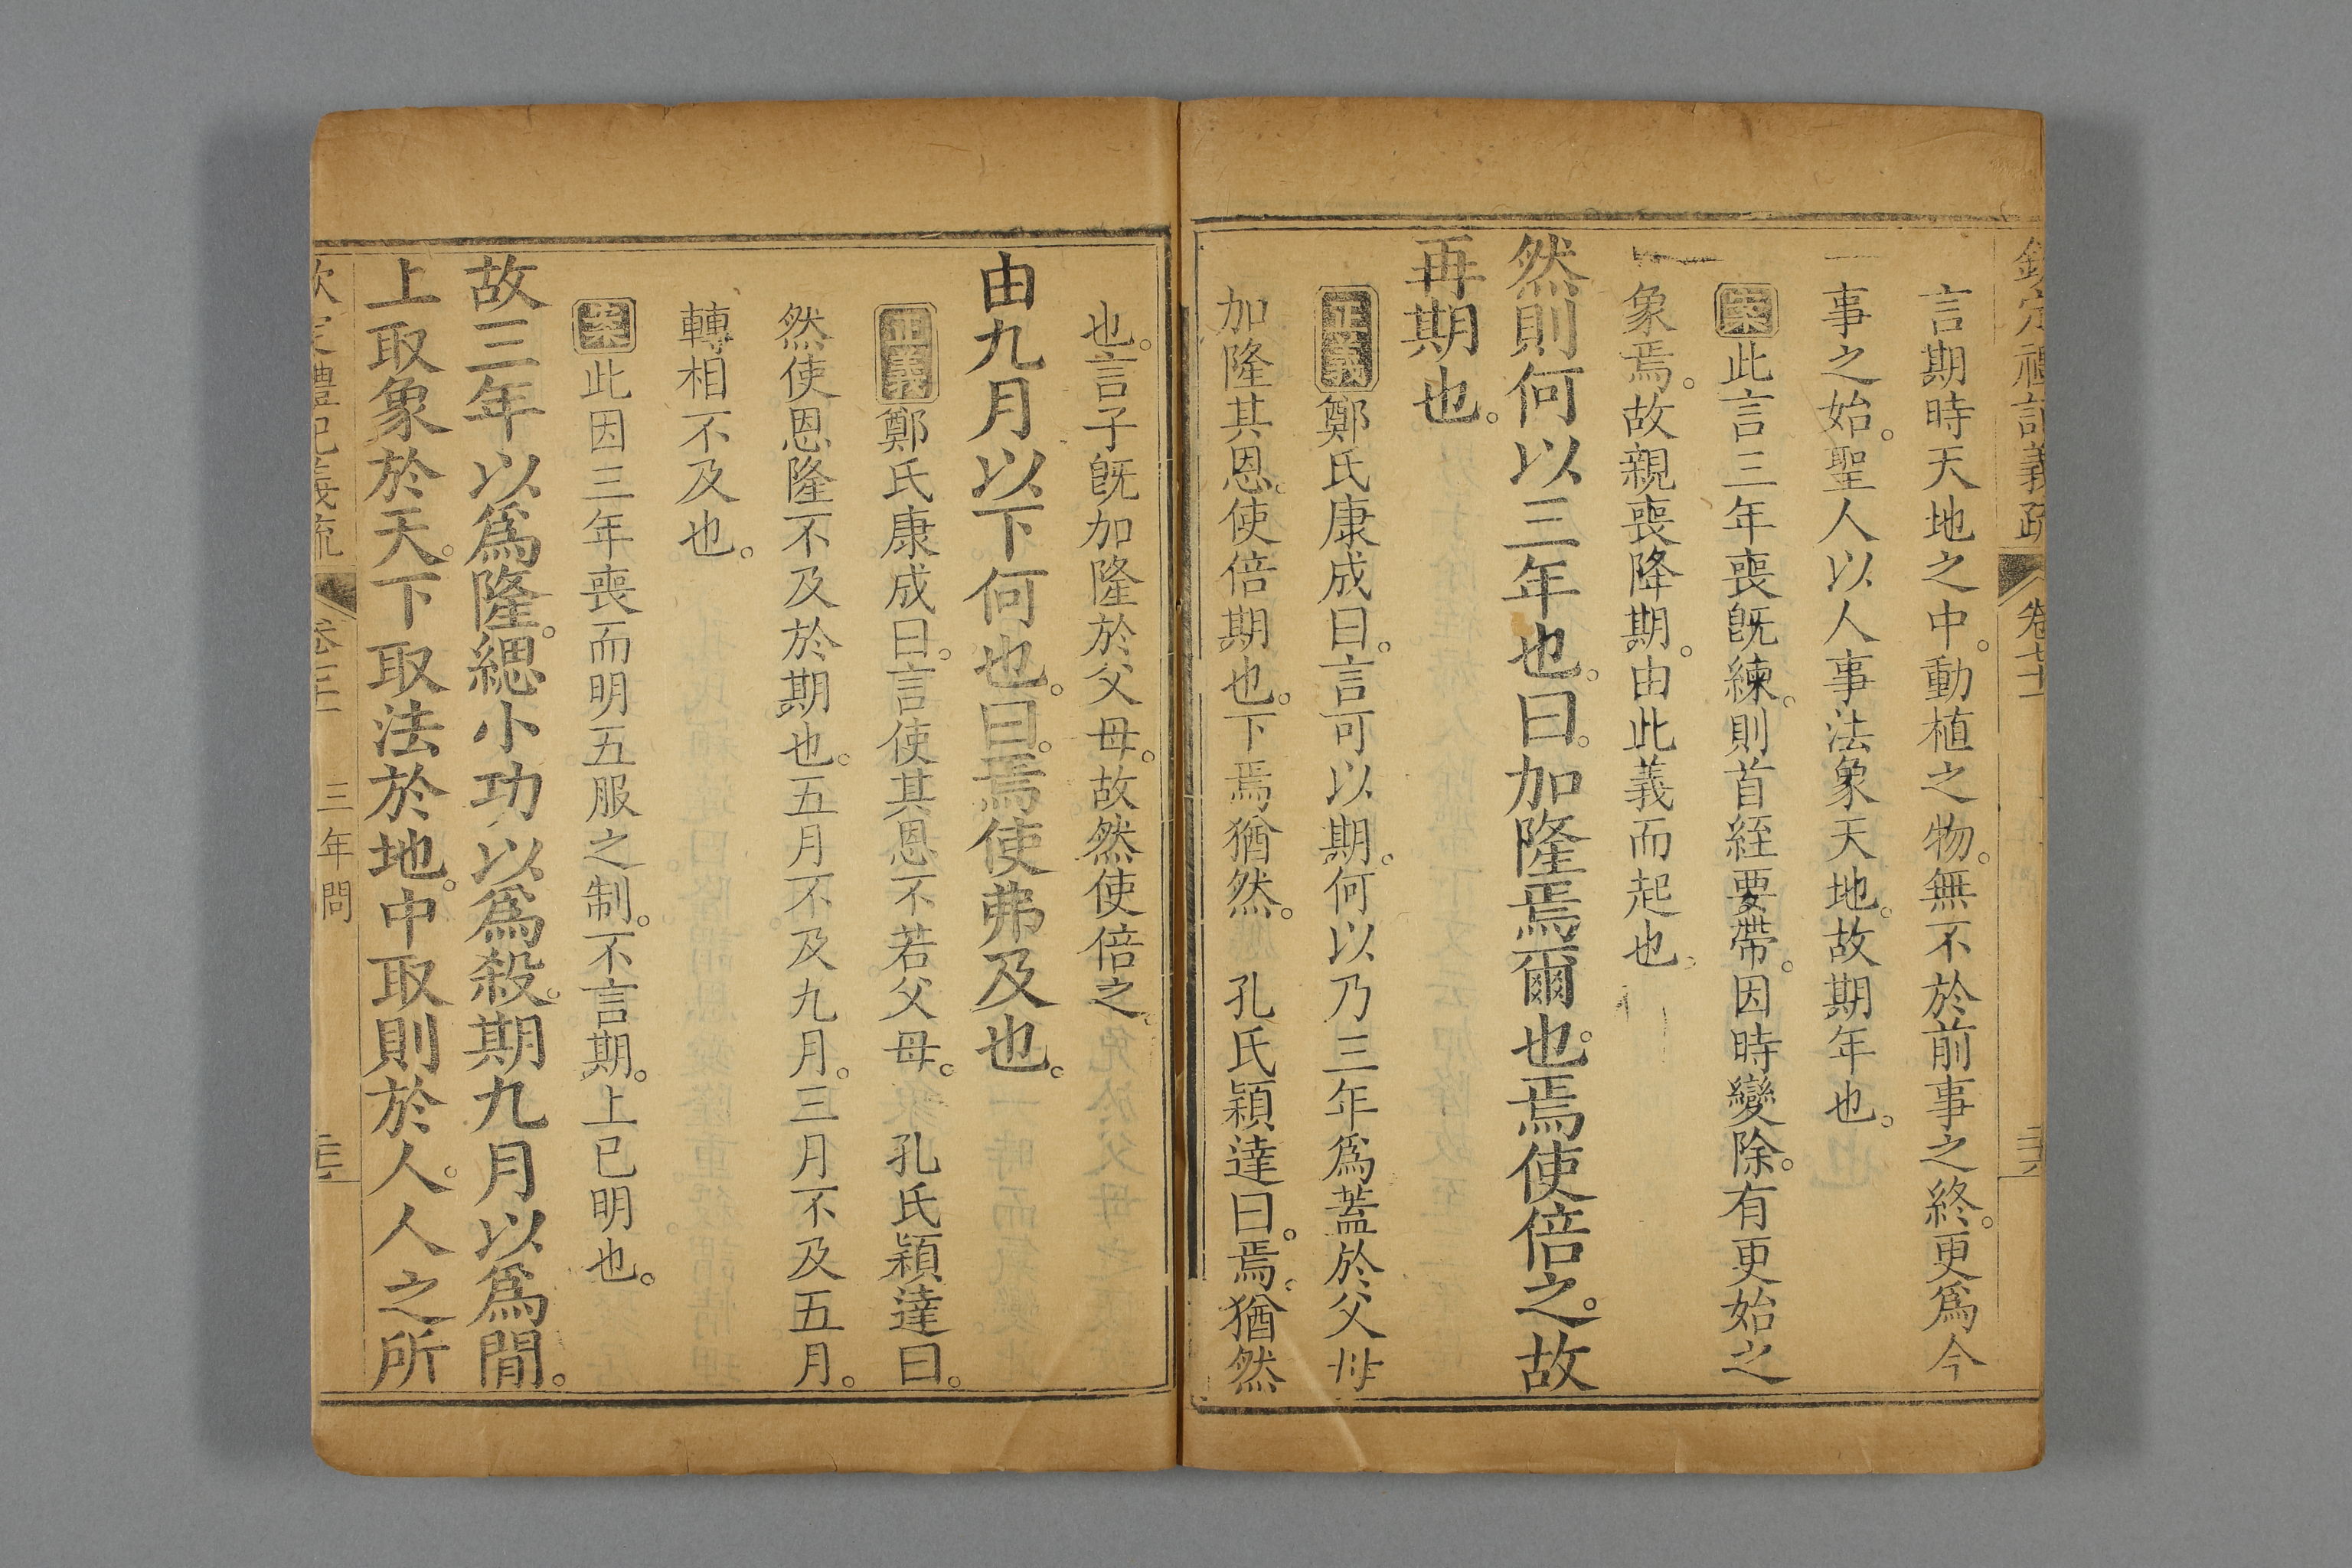 欽定禮記義疏 卷七十一
言期時天地之中。動植之物。無不於前事之終。更爲今
事之始。聖人以人事法象天地。故期年也。
案此言三年喪旣練。則首絰要帶。因時變除。有更始之
象焉。故親喪降期。由此義而起也。
然則何以三年也。曰。加隆焉爾也。焉使倍之。故
再期也。
正義鄭氏康成曰。言可以期。何以乃三年爲。蓋於父母
加隆其恩。使倍期也。下焉猶然。 孔氏穎達曰。焉。猶然
也。言子旣加隆於父母。故然使倍之。
由九月以下何也。曰。焉使弗及也。
正義鄭氏康成曰。言使其恩不若父母。 孔氏穎達曰。
然使恩隆不及於期也。五月不及九月。三月不及五月。
轉相不及也。
案此因三年喪而明五服之制。不言期。上已明也。
故三年以爲隆。緦小功以爲殺。期九月以爲閒。
上取象於天。下取法於地。中取則於人。人之所
欽定禮記義疏 三年問